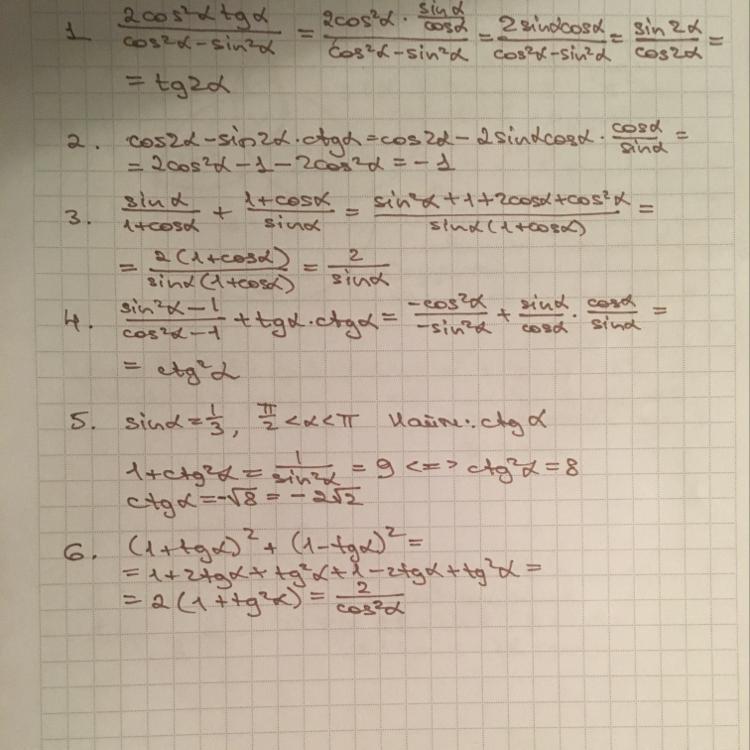 1 (2cos²α tgα)/(cos²α−sin²α) = (2cos²α · sinα/cosα)/(cos²α−sin²α) = (2sinαcosα)/(cos²α−sin²α) = sin2α/cos2α =
= tg2α
2. cos2α−sin2α·ctgα=cos2α−2sinαcosα · cosα/sinα =
= 2cos²α−1−2cos²α = −1
3. sinα/(1+cosα) + (1+cosα)/sinα = (sin²α+1+2cosα+cos²α)/(sinα(1+cosα)) =
= 2(1+cosα)/(sinα(1+cosα)) = 2/sinα
4. (sin²α−1)/(cos²α−1) + tgα·ctgα = (−cos²α)/(−sin²α) + sinα/cosα · cosα/sinα =
= ctg²α
5. sinα=1/3, π/2<α<π Найти: ctgα
1+ctg²α = 1/sin²α = 9 <=> ctg²α = 8
ctgα=−√8 = −2√2
6. (1+tgα)² + (1−tgα)² =
= 1+2tgα+tg²α+1−2tgα+tg²α =
= 2(1+tg²α) = 2/cos²α